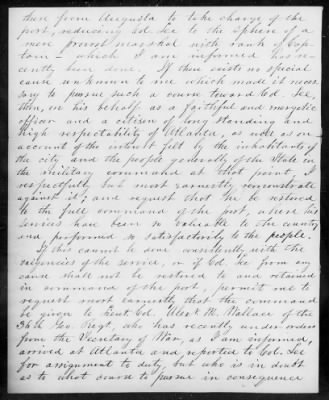 then from Augusta to take charge of the
post, reducing Col. Lee to the sphere of a
mere provost marshal with rank of Cap-
tain - which I am informed has re-
cently been done. If there exists no special
cause unknown to me which made it neces
sary to pursue such a course toward Col. Lee,
then, in his behalf as a faithful and energetic
officer and a citizen of long standing and
high respectability of Atlanta, as well as on
account of the interest felt by the inhabitants of
the city and the people generally of the State in
the military command at that point, I
respectfully but most earnestly remonstrate
against it; and request that he be restored
to the full command of the post, where his
services have been so valuable to the country
and performed so satisfactorily to the people.
If this cannot be done consistently with the
exigencies of the service, or if Col. Lee from any
cause shall not be restored to and retained
in command of the post, permit me to
request most earnestly that the command
be given to Lieut. Col. Alex. M. Wallace of the
36th Geo. Regt. who has recently under orders
from the Secretary of War, as I am informed,
arrived at Atlanta and reported to Col. Lee
for assignment to duty, but who is in doubt
as to what course to pursue in consequence